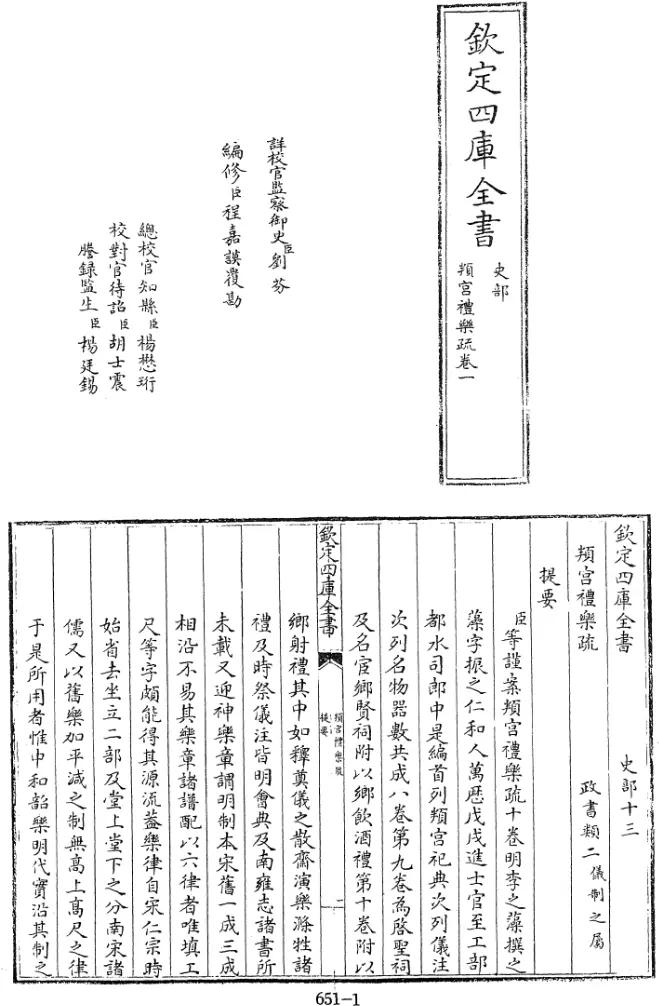 欽定四庫全書
史部
頖宮禮樂疏卷一
詳校官監察御史臣劉芬
編修臣程嘉謨覆勘
總校官知縣臣楊懋珩
校對官待詔臣胡士震
謄錄監生臣楊廷錫
欽定四庫全書 史部十三
頖宮禮樂疏 政書類二儀制之屬
提要
臣等謹案頖宮禮樂疏十卷明李之藻撰之
藻字振之仁和人萬歷戊戌進士官至工部
都水司郎中是編首列頖宮祀典次列儀注
次列名物器數共成八卷第九卷為啓聖祠
及名宦鄉賢祠附以鄉飲酒禮第十卷附以
欽定四庫全書
頖宮禮樂疏
提要
二
鄉射禮其中如釋奠儀之散齋演樂滌牲諸
禮及時祭儀注皆明會典及南雍志諸書所
未載又迎神樂章謂明制本宋舊一成三成
相沿不易其樂章諸譜配以六律者唯填工
尺等字頗能得其源流葢樂律自宋仁宗時
始省去坐立二部及堂上堂下之分南宋諸
儒又以舊樂加平減之制無高上高尺之律
于是所用者惟中和韶樂明代實沿其制之
651-1